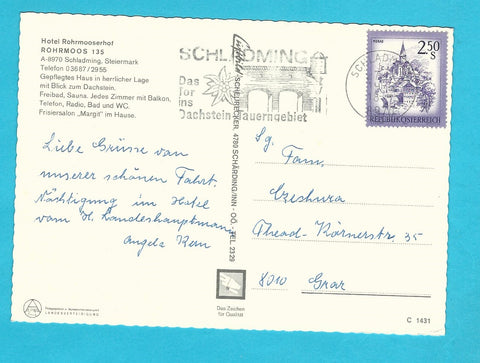 Hotel Rohrmooserhof
ROHRMOOS 135
A-8970 Schladming, Steiermark
Telefon 03687/2955
Gepflegtes Haus in herrlicher Lage
mit Blick zum Dachstein.
Freibad, Sauna. Jedes Zimmer mit Balkon,
Telefon, Radio, Bad und WC.
Frisiersalon „Margit" im Hause.
Liebe Grüsse von
unserer schönen Fahrt.
Nächtigung im Hotel
vom H. Landeshauptmann
Angela
4780 SCHÄRDING/INN - OÖ. - TEL. 23 29
SCHLADMING
Das
Tor
ins
Dachstein-Tauerngebiet
SCHLADMING
2.50
S
REPUBLIK ÖSTERREICH
Sg.
Fam.
Czeshura
Theod-Körnerstr. 35
8010 Graz
Das Zeichen
für Qualität
LANDESVERTEIDIGUNG
C 1431